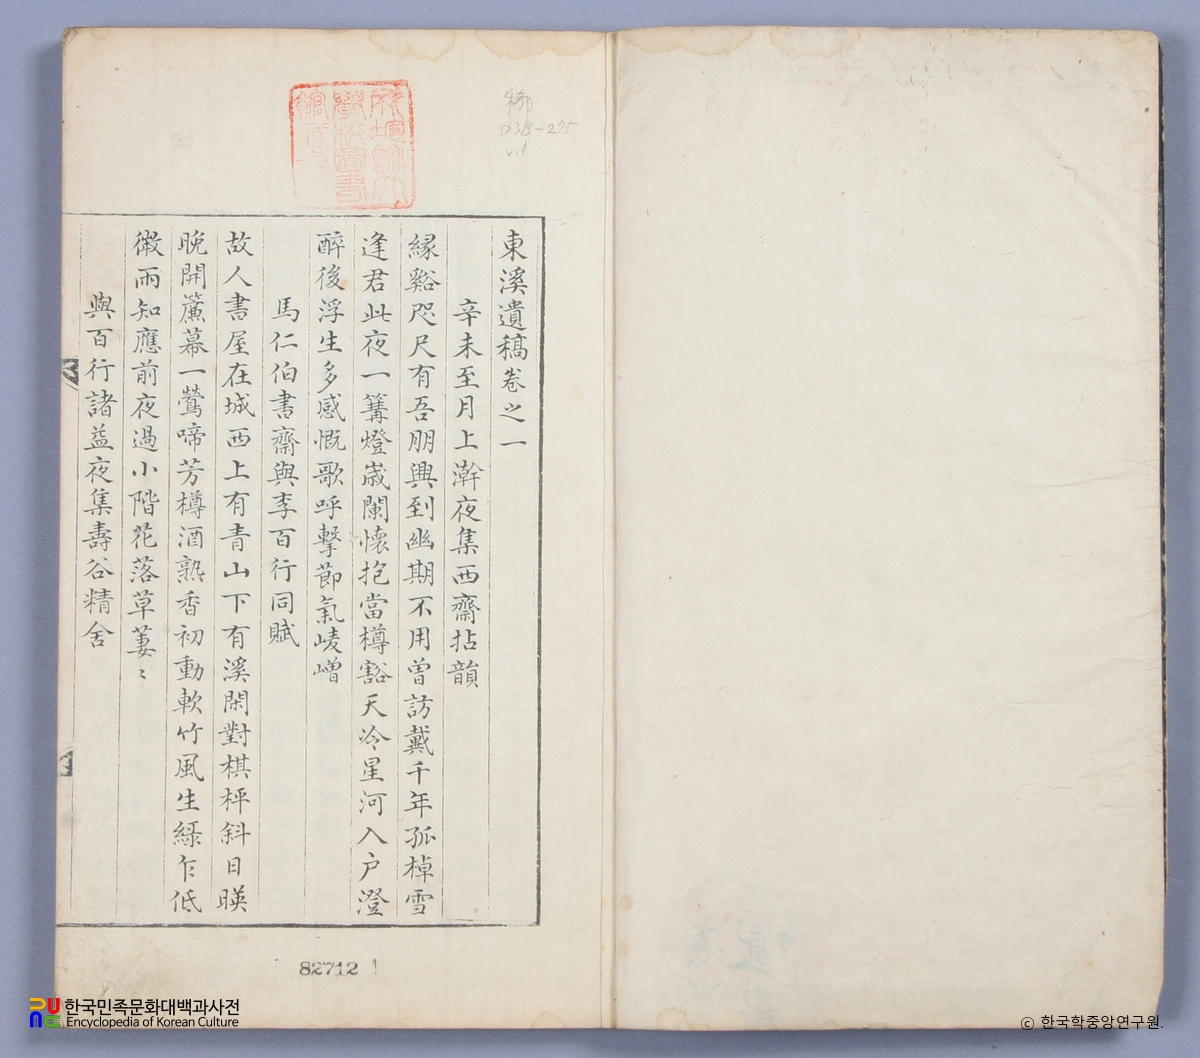 東溪遺稿卷之一
辛未至月上澣夜集西齋拈韻
縁谿咫尺有吾朋興到幽期不用曾訪戴千年孤棹雪
逢君此夜一篝燈歲闌懷抱當樽豁天冷星河入户澄
醉後浮生多感慨歌呼擊節氣崚嶒
馬仁伯書齋與李百行同賦
故人書屋在城西上有青山下有溪閑對棋枰斜日暎
晚開簾幕一鶯啼芳樽酒熟香初動軟竹風生綠乍低
微雨知應前夜過小階花落草萋〻
與百行諸益夜集壽谷精舍
D3B-275
v.1
82712
한국민족문화대백과사전
Encyclopedia of Korean Culture
© 한국학중앙연구원.